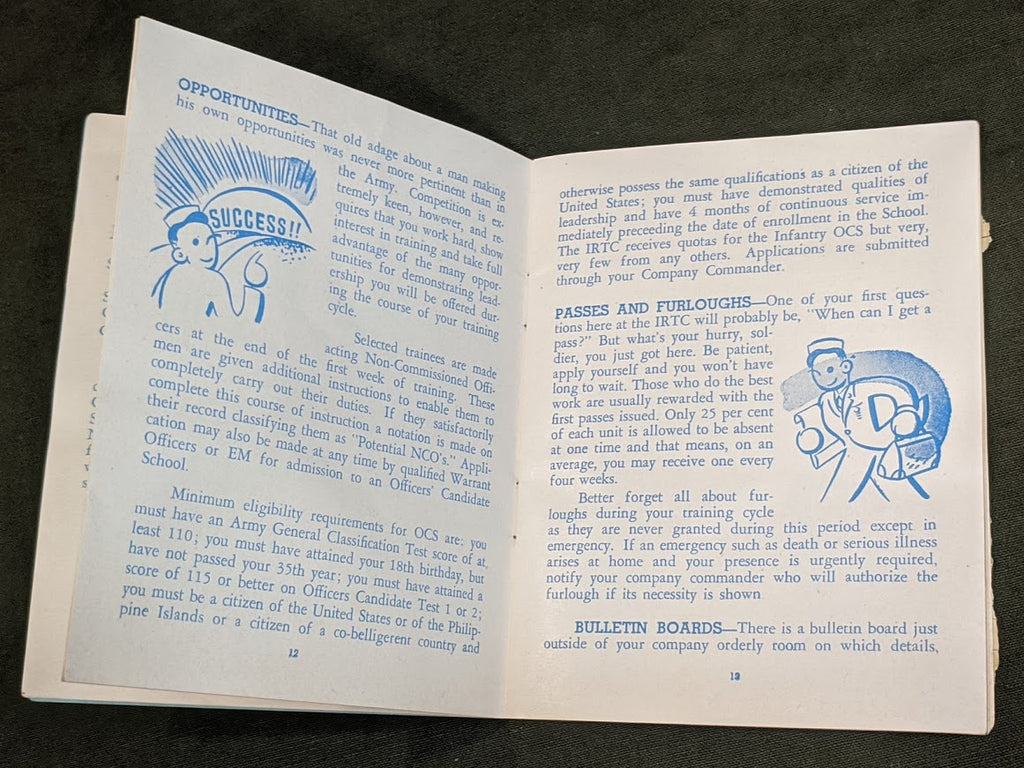 OPPORTUNITIES—That old adage about a man making
his own opportunities was never more pertinent than in
the Army. Competition is ex-
tremely keen, however, and re-
quires that you work hard, show
interest in training and take full
advantage of the many oppor-
tunities for demonstrating lead-
ership you will be offered dur-
ing the course of your training
cycle.
SUCCESS!!
Selected trainees are made
acting Non-Commissioned Offi-
cers at the end of the first week of training. These
men are given additional instructions to enable them to
completely carry out their duties. If they satisfactorily
complete this course of instruction a notation is made on
their record classifying them as "Potential NCO's." Appli-
cation may also be made at any time by qualified Warrant
Officers or EM for admission to an Officers' Candidate
School.
Minimum eligibility requirements for OCS are: you
must have an Army General Classification Test score of at
least 110; you must have attained your 18th birthday, but
have not passed your 35th year; you must have attained a
score of 115 or better on Officers Candidate Test 1 or 2;
you must be a citizen of the United States or of the Philip-
pine Islands or a citizen of a co-belligerent country and
12
otherwise possess the same qualifications as a citizen of the
United States; you must have demonstrated qualities of
leadership and have 4 months of continuous service im-
mediately preceeding the date of enrollment in the School.
The IRTC receives quotas for the Infantry OCS but very,
very few from any others. Applications are submitted
through your Company Commander.
PASSES AND FURLOUGHS—One of your first ques-
tions here at the IRTC will probably be, "When can I get a
pass?" But what's your hurry, sol-
dier, you just got here. Be patient,
apply yourself and you won't have
long to wait. Those who do the best
work are usually rewarded with the
first passes issued. Only 25 per cent
of each unit is allowed to be absent
at one time and that means, on an
average, you may receive one every
four weeks.
Better forget all about fur-
loughs during your training cycle
as they are never granted during this period except in
emergency. If an emergency such as death or serious illness
arises at home and your presence is urgently required,
notify your company commander who will authorize the
furlough if its necessity is shown
BULLETIN BOARDS—There is a bulletin board just
outside of your company orderly room on which details,
13